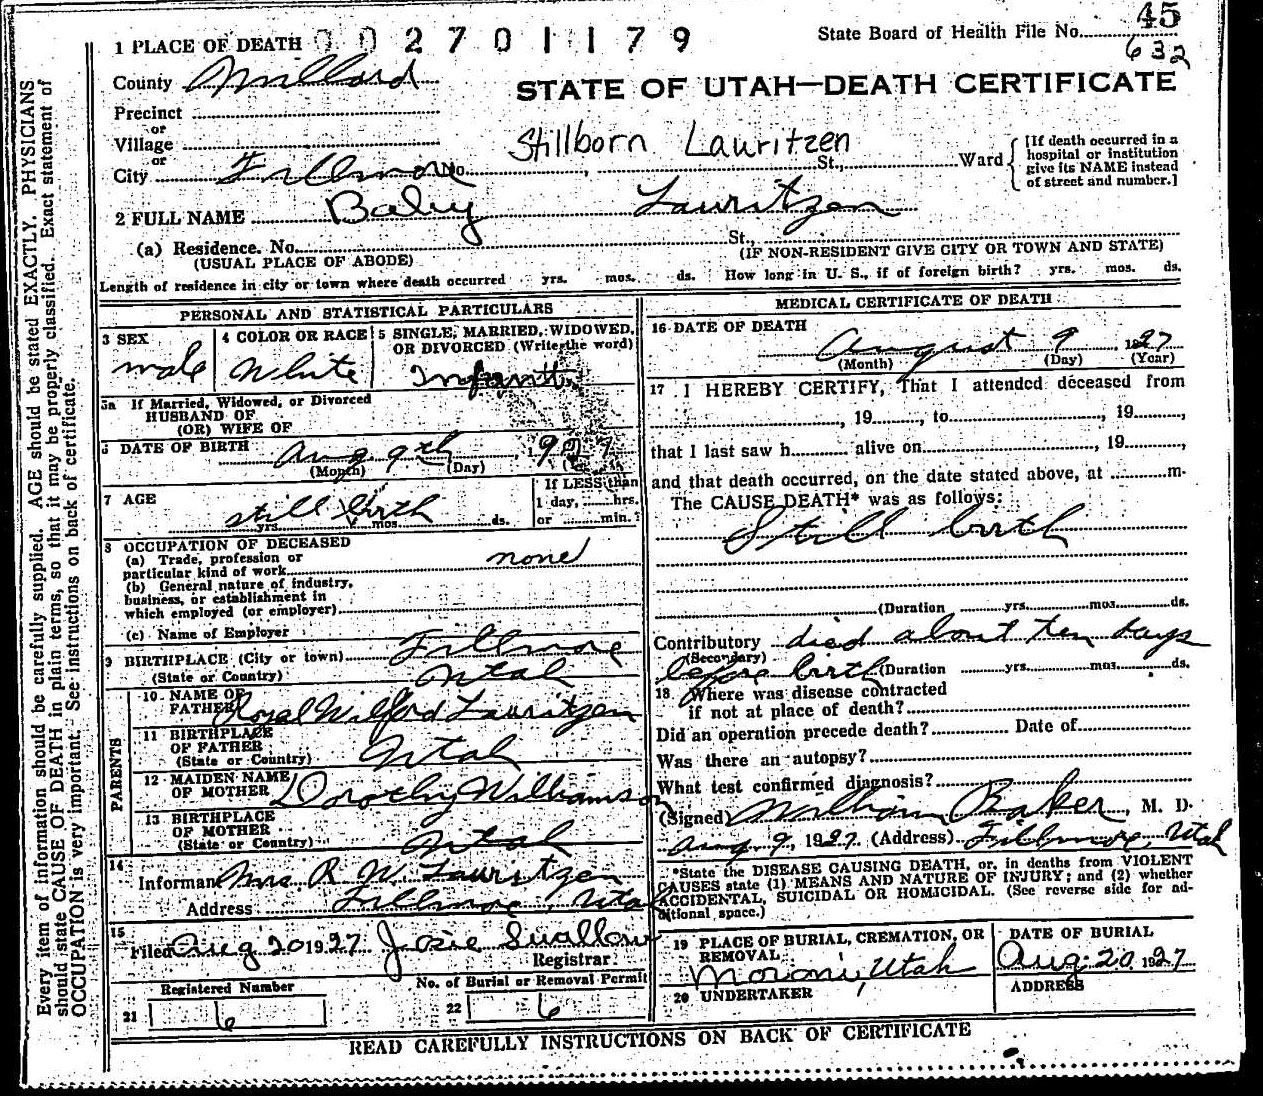 45
1 PLACE OF DEATH 002701179 State Board of Health File No. 632
County Millard
STATE OF UTAH—DEATH CERTIFICATE
Precinct
or
Village
Stillborn Lauritzen
or
City Fillmore No. St., Ward
[If death occurred in a
hospital or institution
give its NAME instead
of street and number.]
2 FULL NAME Baby Lauritzen
(a) Residence. No. St.,
(USUAL PLACE OF ABODE) (IF NON-RESIDENT GIVE CITY OR TOWN AND STATE)
Length of residence in city or town where death occurred yrs. mos. ds. How long in U. S., if of foreign birth? yrs. mos. ds.
PERSONAL AND STATISTICAL PARTICULARS
3 SEX 4 COLOR OR RACE 5 SINGLE, MARRIED, WIDOWED,
OR DIVORCED (Write the word)
male White Infant
5a If Married, Widowed, or Divorced
HUSBAND OF
(OR) WIFE OF
DATE OF BIRTH Aug 9th, 1927
(Month) (Day)
7 AGE still birth
yrs. mos. ds.
If LESS than
1 day, hrs.
or min.?
8 OCCUPATION OF DECEASED
(a) Trade, profession or
particular kind of work none
(b) General nature of industry,
business, or establishment in
which employed (or employer)
(c) Name of Employer
9 BIRTHPLACE (City or town) Fillmore
(State or Country) Utah
PARENTS
10 NAME OF
FATHER Royal Wilford Lauritzen
11 BIRTHPLACE
OF FATHER
(State or Country) Utah
12 MAIDEN NAME
OF MOTHER Dorothy Williamson
13 BIRTHPLACE
OF MOTHER
(State or Country) Utah
14
Informant Mrs R W Lauritzen
Address Fillmore, Utah
15
Filed Aug 20 1927 Josie Swallow
Registrar
Registered Number No. of Burial or Removal Permit
21 6 22 6
MEDICAL CERTIFICATE OF DEATH
16 DATE OF DEATH
August 9, 1927
(Month) (Day) (Year)
17 I HEREBY CERTIFY, That I attended deceased from
, 19, to, 19,
that I last saw h alive on, 19,
and that death occurred, on the date stated above, at m.
The CAUSE DEATH* was as follows:
Still birth
(Duration yrs. mos. ds.
Contributory died about ten days
(Secondary)
before birth (Duration yrs. mos. ds.
18 Where was disease contracted
if not at place of death?
Did an operation precede death? Date of
Was there an autopsy?
What test confirmed diagnosis?
(Signed) William Baker, M. D.
Aug 9, 1927 (Address) Fillmore, Utah
*State the DISEASE CAUSING DEATH, or, in deaths from VIOLENT
CAUSES state (1) MEANS AND NATURE OF INJURY; and (2) whether
ACCIDENTAL, SUICIDAL OR HOMICIDAL. (See reverse side for ad-
ditional space.)
19 PLACE OF BURIAL, CREMATION, OR
REMOVAL
Moroni, Utah
DATE OF BURIAL
Aug. 20 1927
20 UNDERTAKER
ADDRESS
READ CAREFULLY INSTRUCTIONS ON BACK OF CERTIFICATE
Every item of information should be carefully supplied. AGE should be stated EXACTLY. PHYSICIANS
should state CAUSE OF DEATH in plain terms, so that it may be properly classified. Exact statement of
OCCUPATION is very important. See instructions on back of certificate.